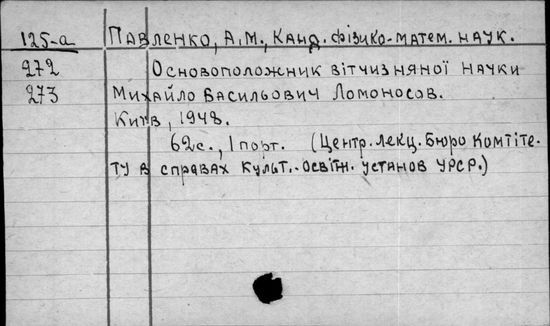 125-а Павленко, А.М., Канд. фізико-матем. наук.
272 Основоположник вітчизняної науки
273 Михайло Васильович Ломоносов.
Київ, 1948.
62с., 1 порт. (Центр. лекц. Бюро Комітите-
ту в справах культ.-освітн. установ УРСР.)